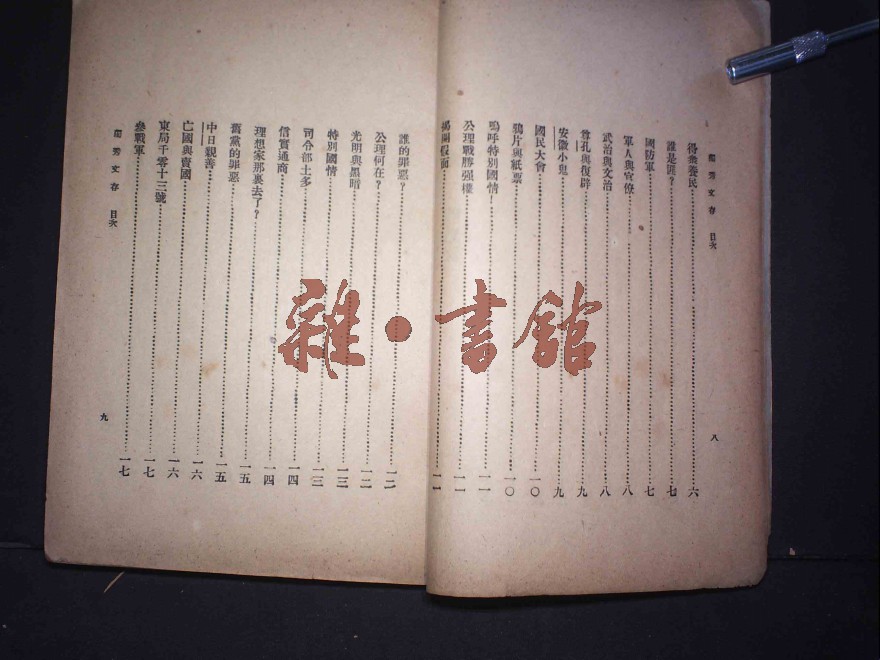 獨秀文存 目次
得衆養民 六
誰是匪? 七
國防軍 七
軍人與官僚 八
武治與文治 八
尊孔與復辟 九
安徽小鬼 九
國民大會 一〇
鴉片與紙票 一〇
嗚呼特別國情! 一一
公理戰勝强權 一一
揭開假面 一一
八
誰的罪惡? 一二
公理何在? 一二
光明與黑暗 一二
特別國情 一三
司令部土多 一三
信實通商 一四
理想家那裏去了? 一四
舊黨的罪惡 一五
中日親善 一五
亡國與賣國 一六
東局千零十三號 一六
參戰軍 一七
獨秀文存 目次
九
雜·書館